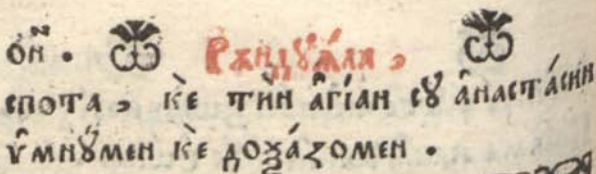 ѻ҆н̾ . Рѫндꙋѧ́лѧ ,
спота , кѐ тѝн а҆гі́ан сꙋ а҆наста́син
ѵ҆мнꙋ̑мен кѐ доѯа́ꙁомен .